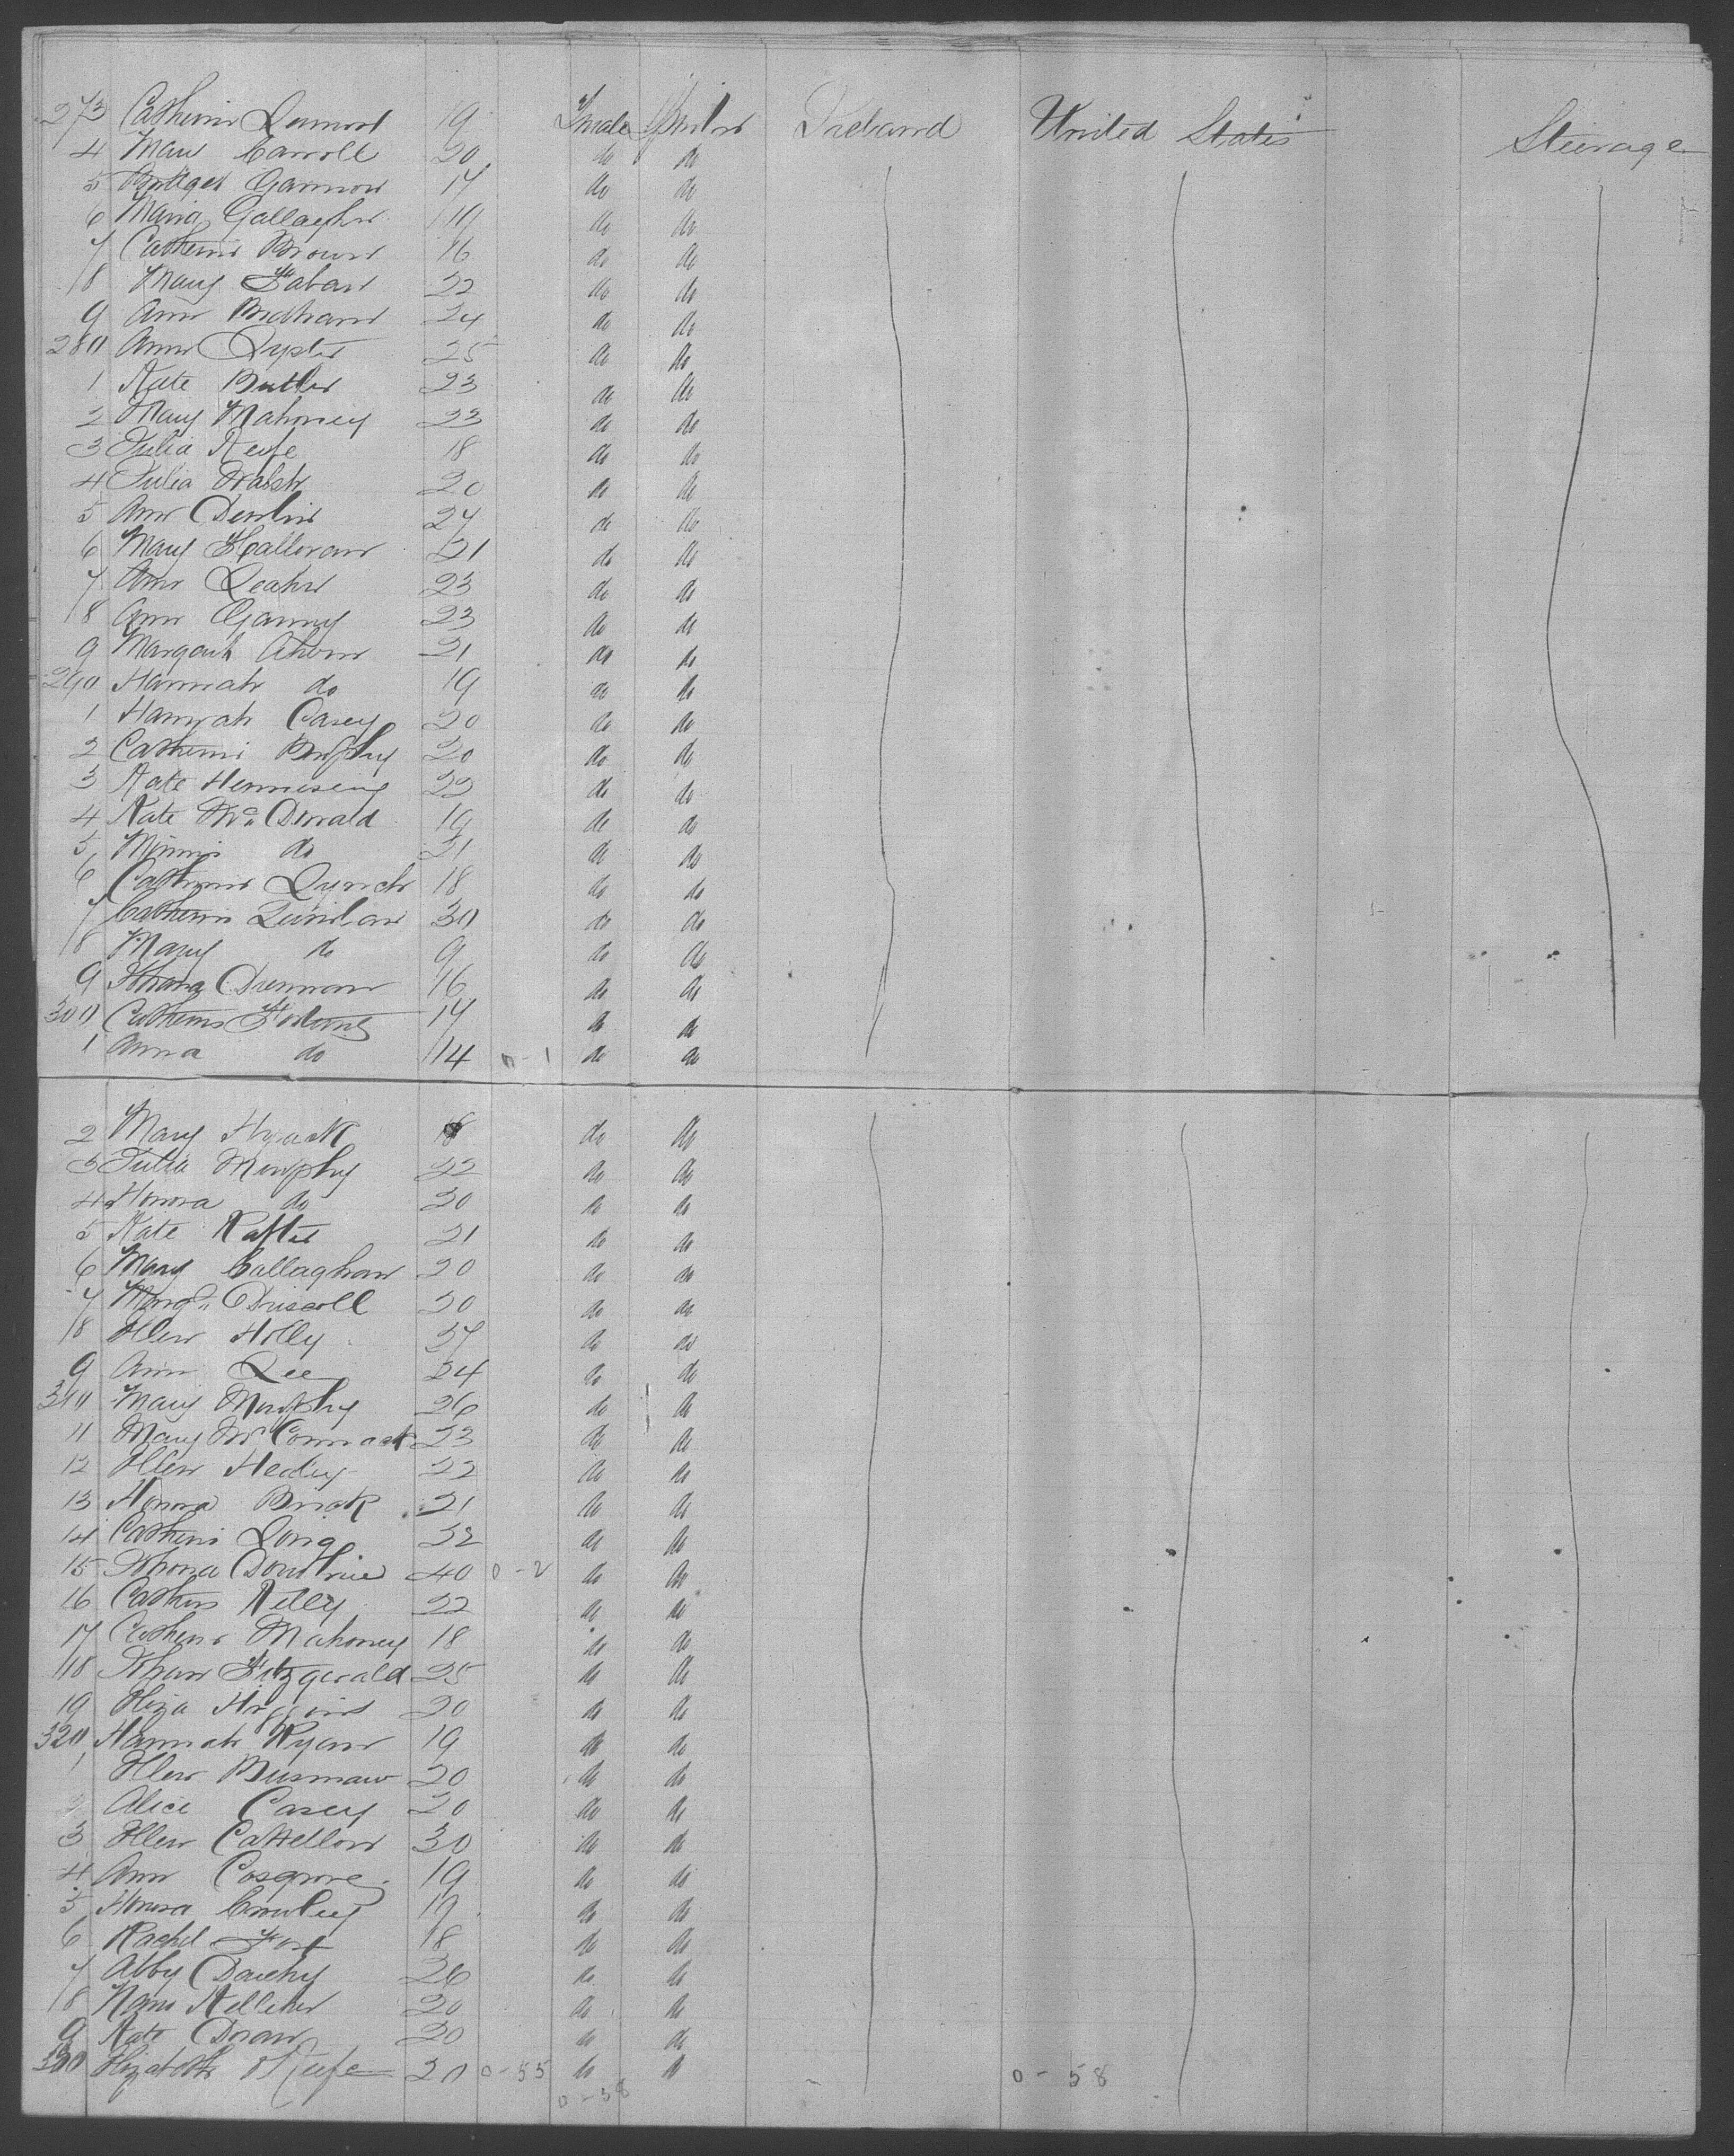 273 Catherine 19 Female Spinster Ireland United States Steerage
4 Mary Carroll 20 do do
5 Bridget Gannon 17 do do
6 Maria Gallagher 19 do do
7 Catherine Brown 16 do do
8 Mary 22 do do
9 Ann 24 do do
280 Ann 25 do do
1 Kate Butler 23 do do
2 Mary Mahoney 23 do do
3 Julia Keefe 18 do do
4 Julia Walsh 20 do do
5 Ann Devlin 24 do do
6 Mary Halloran 21 do do
7 Ann Leahy 23 do do
8 Ann 23 do do
9 Margaret Ahern 21 do do
290 Hannah do 19 do do
1 Hannah Casey 20 do do
2 Catherine 20 do do
3 Kate Hennesey 22 do do
4 Kate McDonald 19 do do
5 Minnie do 21 do do
6 Catherine Lynch 18 do do
7 Catherine Quinlan 30 do do
8 Mary do 9 do do
9 Drennan 16 do do
300 Catherine 17 do do
1 Anna do 14 0-1 do do
2 Mary do do
3 Julia Murphy 22 do do
4 Honora do 20 do do
5 Kate Rafter 21 do do
6 Mary Callaghan 20 do do
7 Margt Driscoll 20 do do
8 Ellen Holly 27 do do
9 Ann Lee 24 do do
310 Mary Murphy 26 do do
11 Mary McCormack 23 do do
12 Ellen Healy 22 do do
13 Honora Brick 21 do do
14 Catherine Long 22 do do
15 40 0-2 do do
16 Catherine Kelly 22 do do
17 Catherine Mahoney 18 do do
18 Johan Fitzgerald 25 do do
19 Eliza Higgins 20 do do
320 Hannah Ryan 19 do do
1 Ellen 20 do do
2 Alice Casey 20 do do
3 Ellen 30 do do
4 Ann Cosgrove 19 do do
5 Honora Crowley 19 do do
6 Rachel 18 do do
7 Abby 26 do do
8 Kelleher 20 do do
9 Kate Doran 20 do do
330 Elizabeth O'Keefe 20 0-55 do do
0-58 0-58